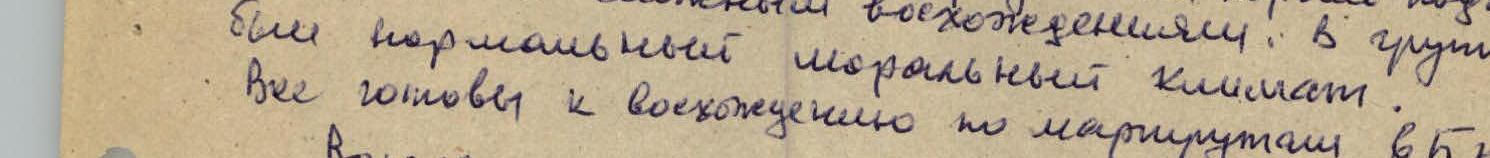 восхождениям. В
был нормальный моральный климат.
Все готовы к восхождению по маршрутам 6Б